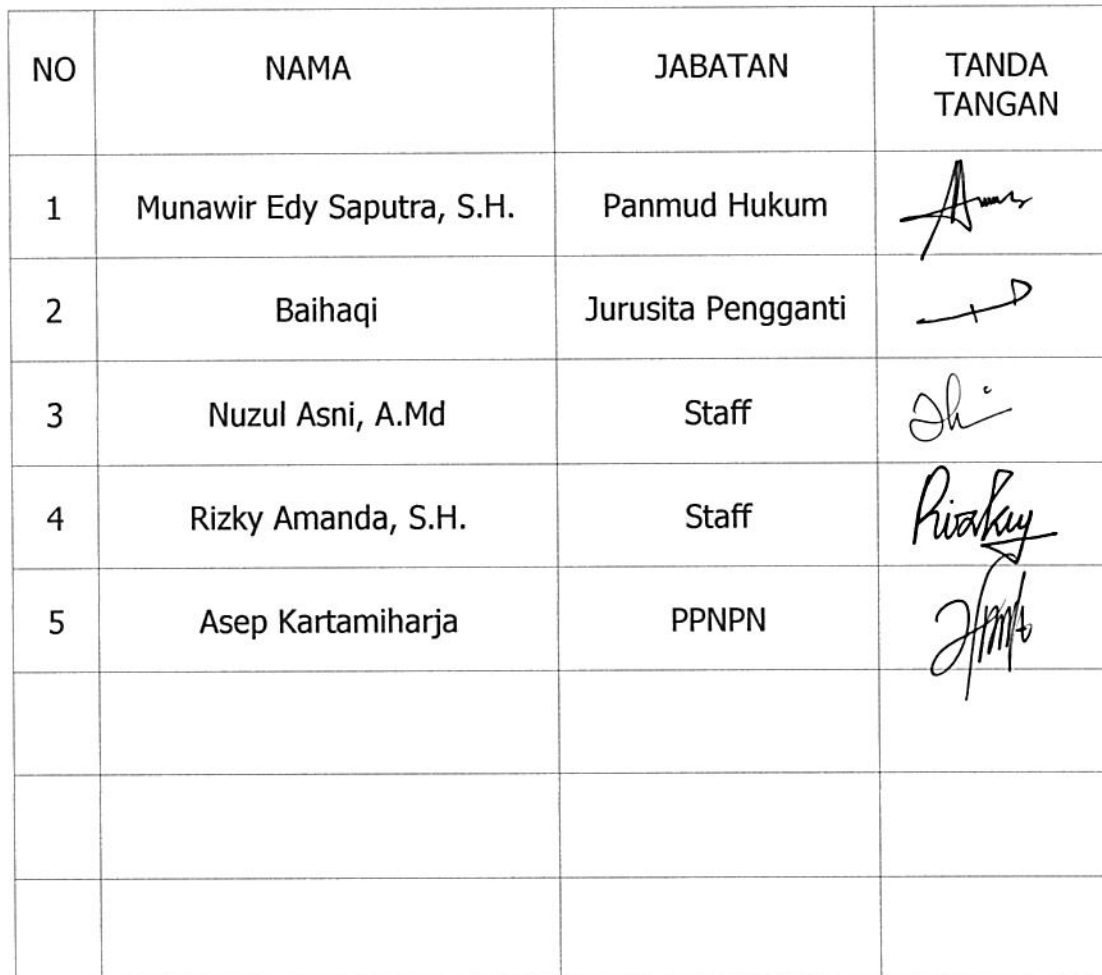 NO NAMA JABATAN TANDA TANGAN
1 Munawir Edy Saputra, S.H. Panmud Hukum
2 Baihaqi Jurusita Pengganti
3 Nuzul Asni, A.Md Staff
4 Rizky Amanda, S.H. Staff
5 Asep Kartamiharja PPNPN